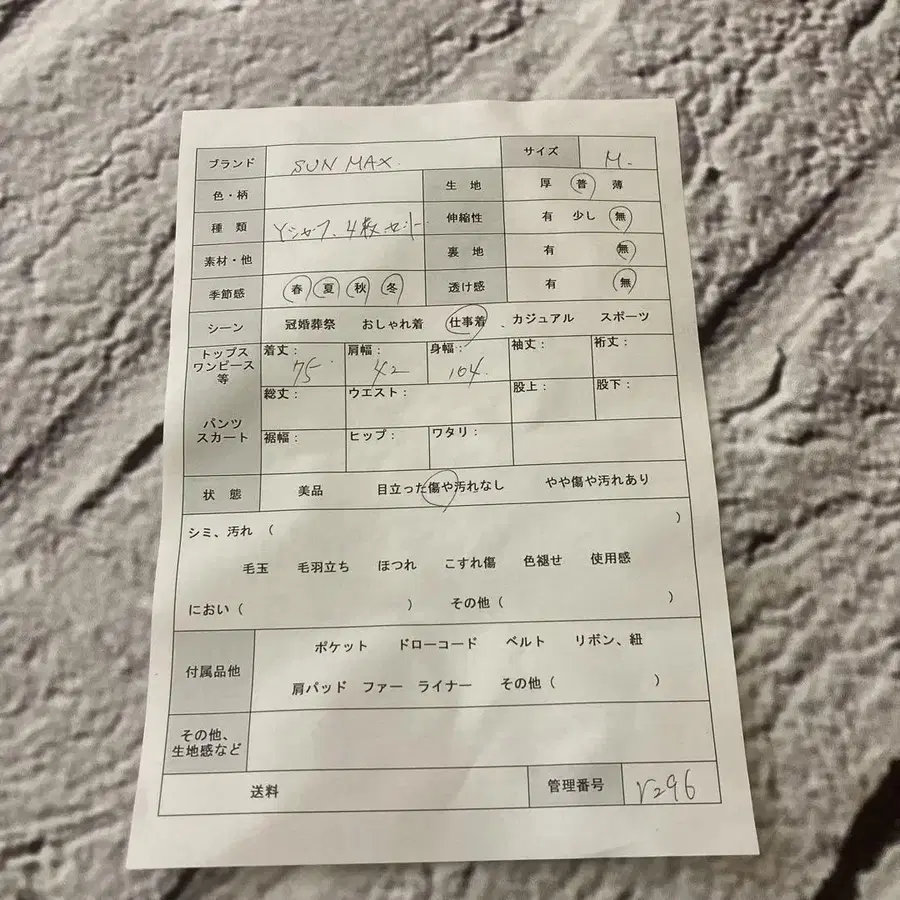 ブランド SUN MAX. サイズ M.
色・柄 生地 厚 普 薄
種類 Yシャツ、4枚セット 伸縮性 有 少し 無
素材・他 裏地 有 無
季節感 春 夏 秋 冬 透け感 有 無
シーン 冠婚葬祭 おしゃれ着 仕事着 、カジュアル スポーツ
トップス
ワンピース
等
着丈: 75 肩幅: 42 身幅: 104. 袖丈: 裄丈:
パンツ
スカート
総丈: ウエスト: 股上: 股下:
裾幅: ヒップ: ワタリ:
状態 美品 目立った傷や汚れなし やや傷や汚れあり
シミ、汚れ ( )
毛玉 毛羽立ち ほつれ こすれ傷 色褪せ 使用感
におい ( ) その他 ( )
付属品他 ポケット ドローコード ベルト リボン、紐
肩パッド ファー ライナー その他 ( )
その他、
生地感など
送料 管理番号 r296